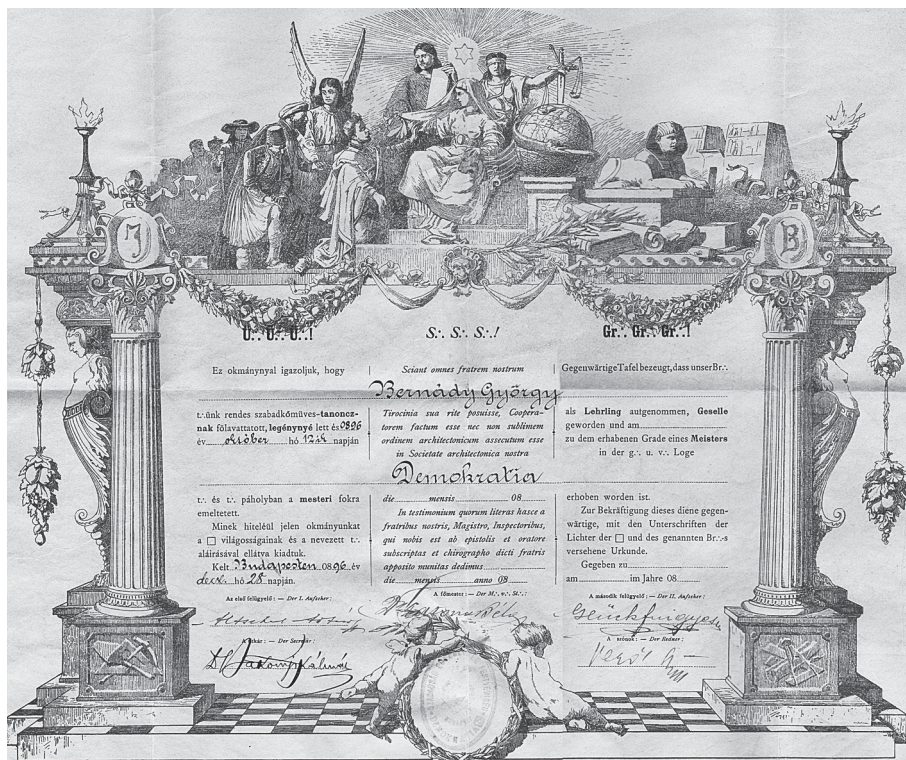 J
B
U∴ U∴ U∴!
Ez okmánynyal igazoljuk, hogy
Bernády György
t∴ünk rendes szabadkőműves-tanoncz-
nak fölavattatott, legénynyé lett és 0896
év október hó 12ik napján
Demokratia
t∴ és t∴ páholyban a mesteri fokra
emeltetett.
Minek hiteléül jelen okmányunkat
a □ világosságainak és a nevezett t∴
aláirásával ellátva kiadtuk.
Kelt Budapesten 0896 év
deck. hó 28 napján.
S∴ S∴ S∴!
Sciant omnes fratrem nostrum
Tirocinia sua rite posuisse, Coopera-
torem factum esse nec non sublimem
ordinem architectonicum assecutum esse
in Societate architectonica nostra
die mensis 08
In testimonium quorum literas hasce a
fratribus nostris, Magistro, Inspectoribus,
qui nobis est ab epistolis et oratore
subscriptas et chirographo dicti fratris
apposito munitas dedimus
die mensis anno 08
Gr∴ Gr∴ Gr∴!
Gegenwärtige Tafel bezeugt, dass unser Br∴
als Lehrling autgenommen, Geselle
geworden und am
zu dem erhabenen Grade eines Meisters
in der g∴ u. v∴ Loge
erhoben worden ist.
Zur Bekräftigung dieses diene gegen-
wärtige, mit den Unterschriften der
Lichter der □ und des genannten Br∴-s
versehene Urkunde.
Gegeben zu
am im Jahre 08
Az első felügyelő: — Der I. Aufseher:
A főmester: — Der M∴ v∴ St∴:
A második felügyelő: — Der II. Aufseher:
A titkár: — Der Secretär:
A szónok: — Der Redner: